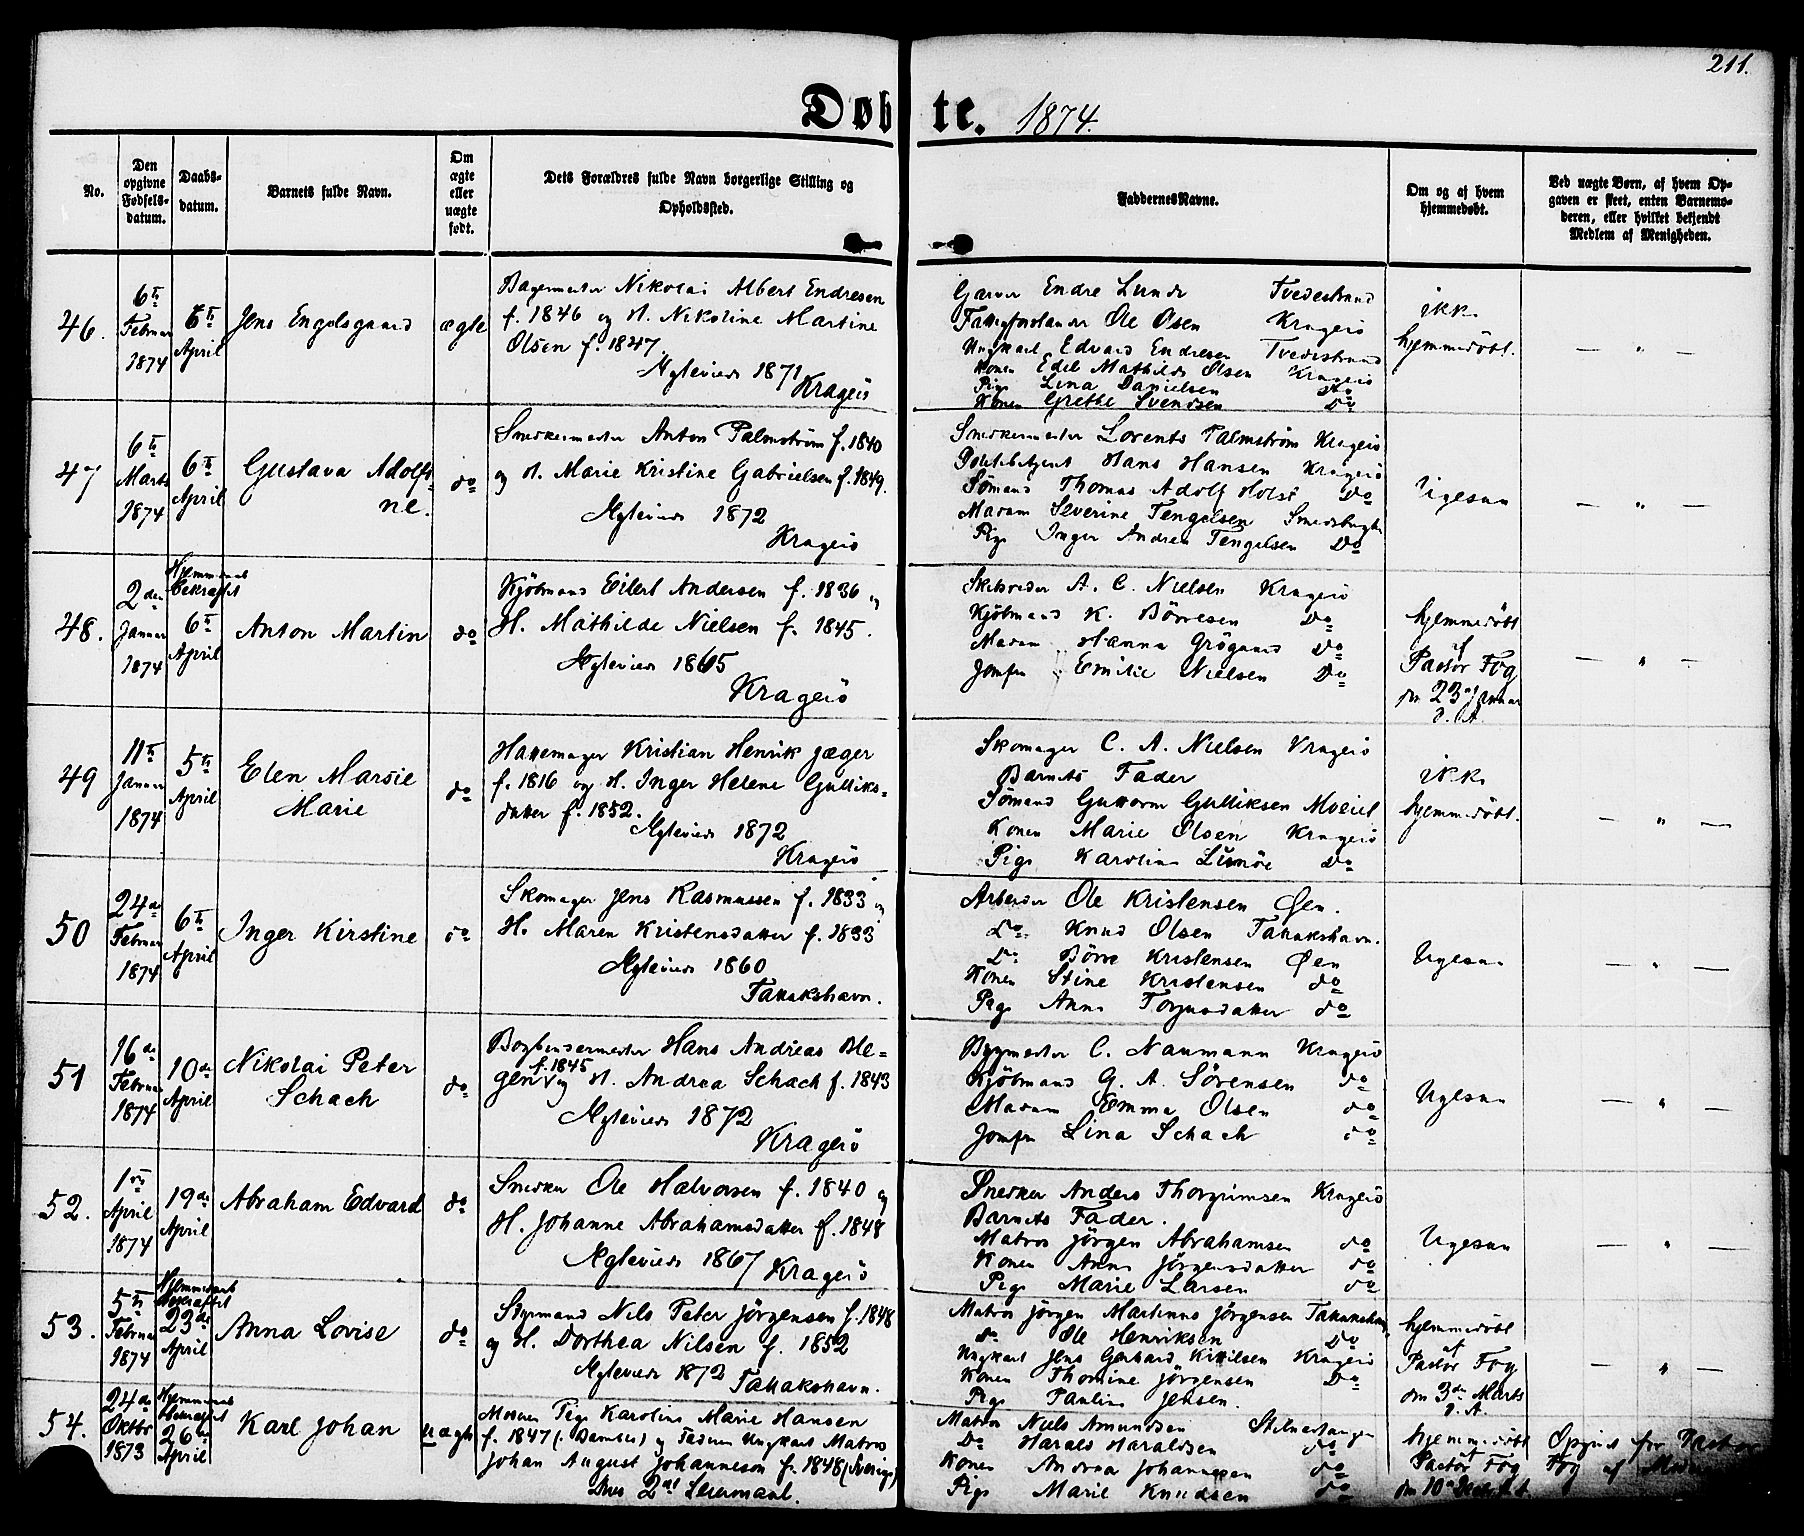 211.
Døbte. 1874.
No.
Den opgivne Fødsels-datum.
Daabs-datum.
Barnets fulde Navn.
Om ægte eller uægte født.
Dets Forældres fulde Navn borgerlige Stilling og Opholdssted.
FaddernesNavne.
Om og af hvem hjemmedøbt.
Ved uægte Børn, af hvem Opgaven er skeet, enten Barnemoderen, eller hvilket bekjendt Medlem af Menigheden.
46.
6te Februar 1874
April
Jens Engelsgaard
ægte
Bagermester Nikolai Albert Endresen
f. 1846 og H. Nikoline Martine
Olsen f. 1847.
Ægteviede 1871
Kragerö
Garver Endre Lunde Tvedestrand
Ole Olsen Kragerö
Ungkarl Edvard Endresen Tvedestrand
Konen Edel Mathilde Olsen Kragerö
Pige Lina Danielsen Do
Konen Grethe Svendsen Do
ikke
hjemmedöbt.
— " —
47
6te Marts 1874
6te April
Gustava Adolfi-
ne.
do
Snedkermester Anton Palmström f. 1840
og H. Marie Kristine Gabrielsen f. 1849.
Ægteviede 1872
Kragerö
Snedkermester Lorents Palmström Kragerö
Politibetjent Hans Hansen Kragerö
Sömand Thomas Adolf Holst Do
Madam Severine Tengelsen
Pige Inger Andrea Tengelsen Do
Ligesaa
— " —
48.
2den Januar 1874
Hjemmedaab bekræftet
6te April
Anton Martin
do
Kjöbmand Eilert Andersen f. 1836 og
H. Mathilde Nielsen f. 1845.
Ægteviede 1865
Kragerö
Skibsreder A. C. Nielsen Kragerö
Kjöbmand K. Börresen Do
Madam Hanna Grögaard Do
Jomfru Emilie Nielsen Do
hjemmedöbt
af
Pastor Fog
den 23de Januar
d. A.
— " —
49
11te Januar 1874
5te April
Elen Marsie
Marie
do
Hattemager Kristian Henrik Jæger
f. 1816 og H. Inger Helene Gulliks-
datter f. 1852.
Ægteviede 1872
Kragerö
Skomager C. A. Nielsen Kragerö
Barnets Fader
Sömand Guttorm Gulliksen
Konen Marie Olsen Kragerö
Pige Karoline Do
ikke
hjemmedöbt.
— " —
50
24de Februar 1874
6te April
Inger Kirstine
do
Skomager Jens Rasmussen f. 1833 og
H. Maren Kristensdatter f. 1833
Ægteviede 1860
Tattakshavn.
Arbeider Ole Kristensen Øen.
Do Knud Olsen Tattakshavn.
Do Börre Kristensen Øen
Konen Stine Kristensen do
Pige Anne Torjusdatter do
Ligesaa
— " —
51
16de Februar 1874
10de April
Nikolai Peter
Schach
do
Bogbindermester Hans Andreas Ble-
f. 1845
gen og H. Andrea Schach f. 1843
Ægteviede 1872
Kragerö
Bygmester C. Naumann Kragerö
Kjöbmand G. A. Sörensen do
Madam Emma Olsen do
Jomfru Lina Schach do
Ligesaa
— " —
52.
1ste April 1874
19de April
Abraham Edvard
do
Snedker Ole Halvorsen f. 1840 og
H. Johanne Abrahamsdatter f. 1848
Ægteviede 1867
Kragerö
Snedker Anders Thorgrimsen Kragerö
Barnets Fader.
Matros Jörgen Abrahamsen do
Konen Anne Jörgensdatter do
Pige Marie Larsen do
Ligesaa
— " —
53.
5te Februar 1874
Hjemmedaab bekræftet
23de April
Anna Lovise
do
Styrmand Nils Peter Jörgensen f. 1848
og H. Dorthea Nilsen f. 1852
Ægteviede 1872
Tattakshavn.
Matros Jörgen Martinus Jörgensen Tattakshavn
Do Ole Henriksen Do
Ungkarl Jens Gerhard Kittilsen Kragerö
Konen Thomine Jörgensen Do
Pige Pauline Jensen.
hjemmedöbt
af
Pastor Fog
den 3de Marts
d. A.
— " —
54.
24de Oktbr 1873
Hjemmedaab bekræftet
26de April
Karl Johan
uægte
Moder Pige Karoline Marie Hansen
f. 1847 (i Bamble) og Fader Ungkarl Matros
Johan August Johannesson f. 1848 (Sverige)
2det Leiermaal.
Matros Niels Amundsen
Do Harald Haraldsen do
Konen Andrea Johannesen do
Pige Marie Knudsen do
hjemmedöbt
Pastor Fog
den 10de
Opgivet for Pastor
Fog af